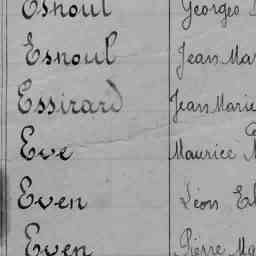 Esnoul Georges
Esnoul Jean Mar
Essirard Jean Marie
Eve Maurice
Even Léon
Even Pierre Ma